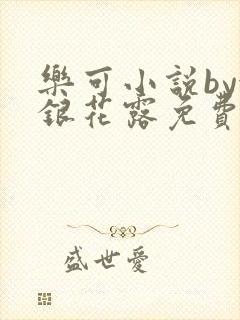 樂可小說by
銀花露免費
盛世愛